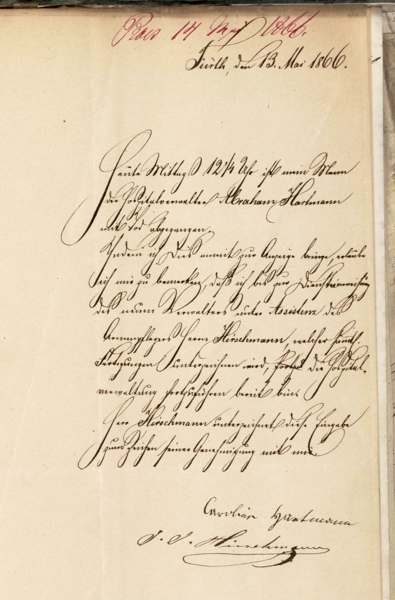 Präs 14 Mai 1866.
Fürth, den 13. Mai 1866.
Heute Mittags 12¼ Uhr ist mein Mann
der Hospitalverwalter Abraham Hartmann
mit Tod abgegangen.
Indem ich Dies anmit zur Anzeige bringe, erlaube
ich mir zu bemerken, daß ich bis zur Diensteinweisung
des neuen Verwalters unter Assistenz des
Armenpflegers Herrn Hirschmann, welcher sämtl.
Fertigungen unterzeichnen wird, die Hospital-
verwaltung fortzuführen bereit bin.
Herr Hirschmann unterzeichnet diese Eingabe
zum Zeichen seiner Genehmigung mit mir.
Caroline Hartmann
Hirschmann